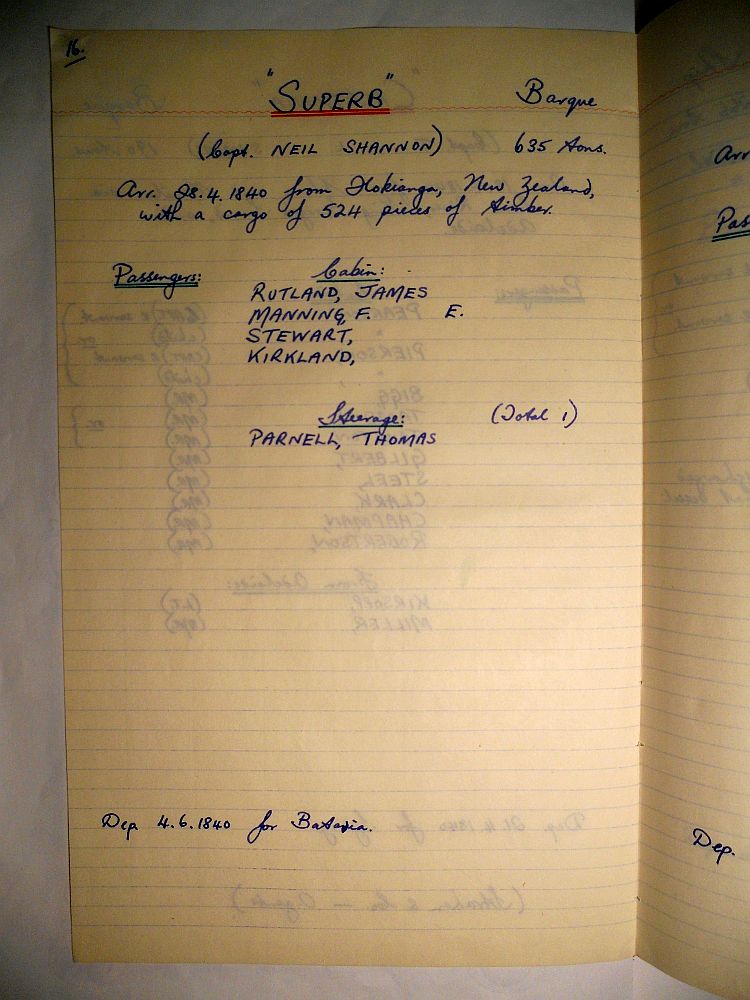 16.
"SUPERB" Barque
(Capt. NEIL SHANNON) 635 tons.
Arr. 28.4.1840 from Hokianga, New Zealand,
with a cargo of 524 pieces of timber.
Passengers: Cabin:
RUTLAND, JAMES
MANNING, F. E.
STEWART,
KIRKLAND,
Steerage: (Total 1)
PARNELL, THOMAS
Dep. 4.6.1840 for Batavia.
Arr
Pas
Dep.